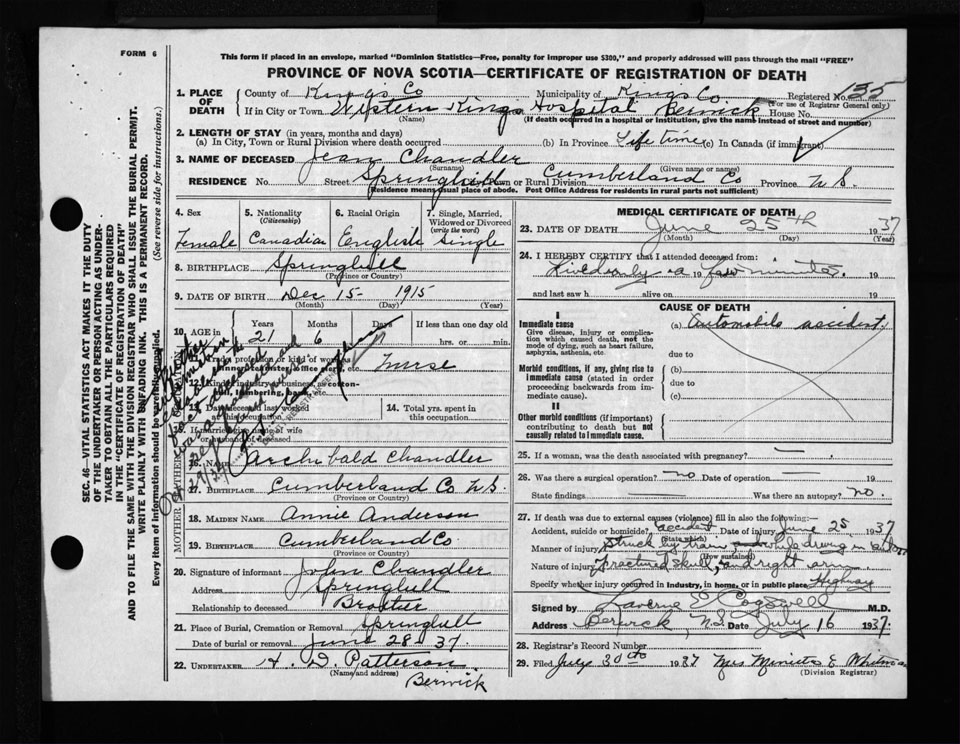 FORM 6
This form if placed in an envelope, marked "Dominion Statistics—Free, penalty for improper use $300," and properly addressed will pass through the mail "FREE"
PROVINCE OF NOVA SCOTIA—CERTIFICATE OF REGISTRATION OF DEATH
1. PLACE OF DEATH County of Kings Co Municipality of Kings Co Registered No. 135
(For use of Registrar General only)
If in City or Town Western Kings Hospital Berwick House No.
(Name) (If death occurred in a hospital or institution, give the name instead of street and number)
2. LENGTH OF STAY (in years, months and days)
(a) In City, Town or Rural Division where death occurred (b) In Province Life time (c) In Canada (if immigrant)
3. NAME OF DECEASED Jean Chandler
(Surname) (Given name or names)
RESIDENCE No. Street Springhill Town or Rural Division Cumberland Co Province N.S.
(Residence means usual place of abode. Post Office Address for residents in rural parts not sufficient)
SEC. 46—VITAL STATISTICS ACT MAKES IT THE DUTY
OF THE UNDERTAKER OR PERSON ACTING AS UNDER-
TAKER TO OBTAIN ALL THE PARTICULARS REQUIRED
IN THE "CERTIFICATE OF REGISTRATION OF DEATH"
AND TO FILE THE SAME WITH THE DIVISION REGISTRAR WHO SHALL ISSUE THE BURIAL PERMIT.
WRITE PLAINLY WITH UNFADING INK. THIS IS A PERMANENT RECORD.
Every item of information should be carefully supplied. (See reverse side for instructions.)
4. Sex Female
5. Nationality (Citizenship) Canadian
6. Racial Origin English
7. Single, Married, Widowed or Divorced (write the word) Single
8. BIRTHPLACE Springhill
(Province or Country)
9. DATE OF BIRTH Dec 15 - 1915
(Month) (Day) (Year)
10. AGE in Years Months Days If less than one day old
21 6 hrs. or min.
11. Trade, profession or kind of work as Nurse
12. Kind of industry or business, as cotton-
mill, lumbering, bank, etc.
13. Date deceased last worked at this occupation
14. Total yrs. spent in this occupation
15. If married, give name of wife or husband of deceased
FATHER
16. Name Archibald Chandler
17. BIRTHPLACE Cumberland Co N.S.
(Province or Country)
MOTHER
18. MAIDEN NAME Annie Anderson
19. BIRTHPLACE Cumberland Co
(Province or Country)
20. Signature of informant John Chandler
Address Springhill
Relationship to deceased Brother
21. Place of Burial, Cremation or Removal Springhill
Date of burial or removal June 28 - 37
22. UNDERTAKER A. D. Patterson
(Name and address)
Berwick
MEDICAL CERTIFICATE OF DEATH
23. DATE OF DEATH June 25th 1937
(Month) (Day) (Year)
24. I HEREBY CERTIFY that I attended deceased from:
Lived only a few minutes. 19
and last saw h alive on 19
CAUSE OF DEATH
I
Immediate cause (a) Automobile accident
Give disease, injury or complica-
tion which caused death, not the
mode of dying, such as heart failure,
asphyxia, asthenia, etc.
due to
Morbid conditions, if any, giving rise to
immediate cause (stated in order
proceeding backwards from im-
mediate cause).
(b)
due to
(c)
II
Other morbid conditions (if important)
contributing to death but not
causally related to immediate cause.
25. If a woman, was the death associated with pregnancy?
26. Was there a surgical operation? no Date of operation
State findings Was there an autopsy? no.
27. If death was due to external causes (violence) fill in also the following:
Accident, suicide or homicide? accident Date of injury June 25 1937
(State which)
Manner of injury Struck by train, while driving in
(How sustained)
Nature of injury fractured skull, and right arm
Specify whether injury occurred in industry, in home, or in public place Highway
Signed by Laverne S Cogswell M.D.
Address Berwick, N.S. Date July 16 1937.
28. Registrar's Record Number
29. Filed July 30th 1937 Mrs E. Whitman
(Division Registrar)